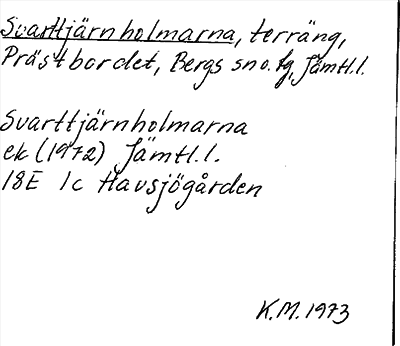 Svarttjärnholmarna, terräng,
Prästbordet, Bergs sn o. tg, Jämtl. l.
Svarttjärnholmarna
ek (1972) Jämtl. l.
18E 1c Havsjögården
K.M. 1973